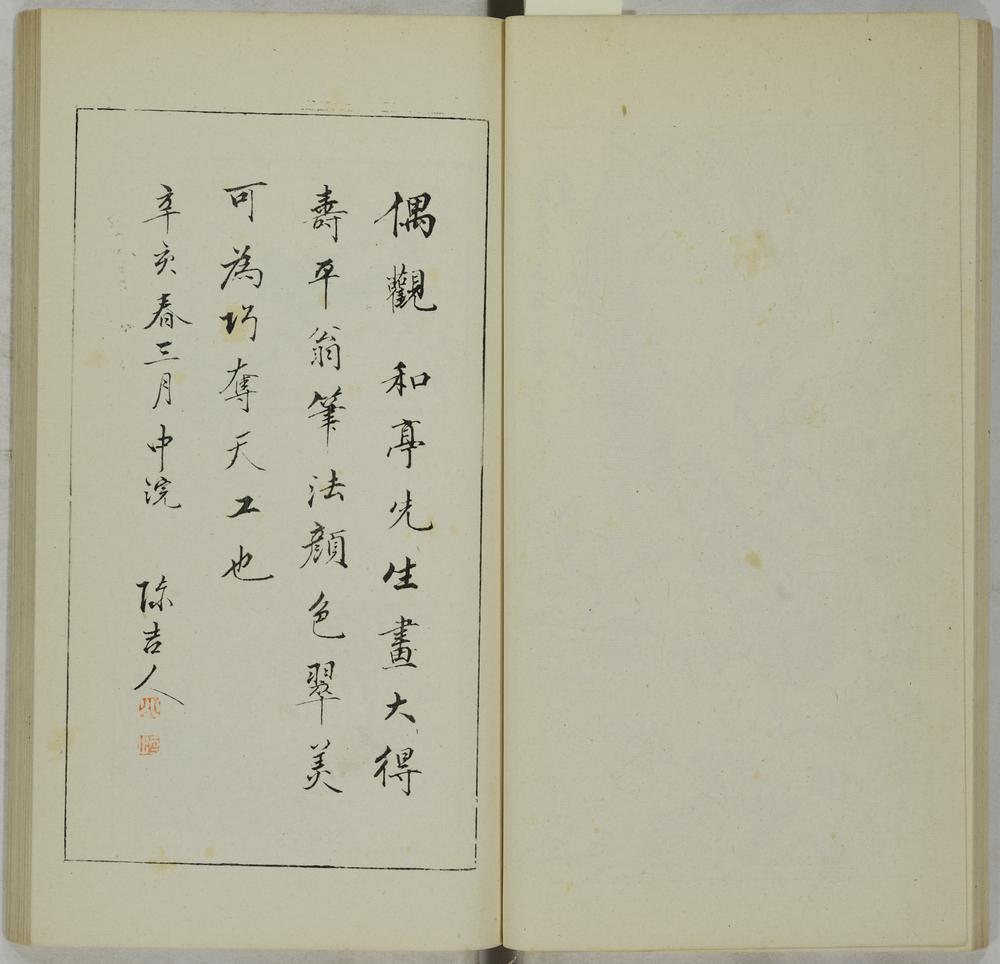 偶觀和亭先生畫大得
壽平翁筆法顏色翠美
可為巧奪天工也
辛亥春三月中浣 陳吉人